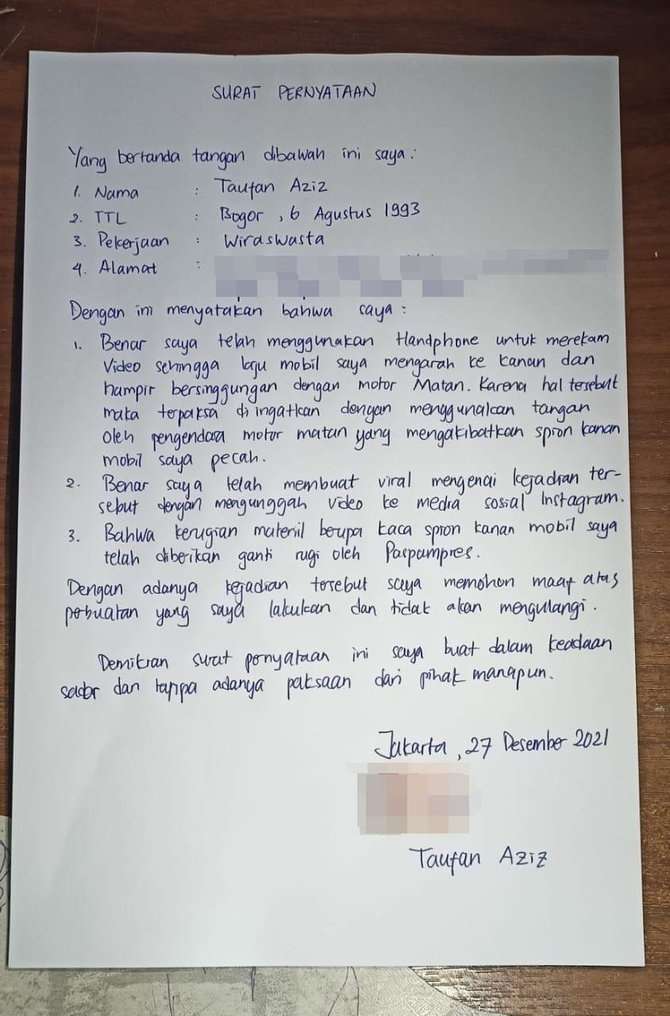 SURAT PERNYATAAN
Yang bertanda tangan dibawah ini saya :
1. Nama : Taufan Aziz
2. TTL : Bogor, 6 Agustus 1993
3. Pekerjaan : Wiraswasta
4. Alamat :
Dengan ini menyatakan bahwa saya :
1. Benar saya telah menggunakan Handphone untuk merekam
Video sehingga laju mobil saya mengarah ke kanan dan
hampir bersinggungan dengan motor Matan. Karena hal tersebut
maka terpaksa di ingatkan dengan menggunakan tangan
oleh pengendara motor matan yang mengakibatkan spion kanan
mobil saya pecah.
2. Benar saya telah membuat viral mengenai kejadian ter-
sebut dengan mengunggah video ke media sosial Instagram.
3. Bahwa kerugian materiil berupa kaca spion kanan mobil saya
telah diberikan ganti rugi oleh Paspampres.
Dengan adanya kejadian tersebut saya memohon maaf atas
perbuatan yang saya lakukan dan tidak akan mengulangi.
Demikian surat pernyataan ini saya buat dalam keadaan
sadar dan tanpa adanya paksaan dari pihak manapun.
Jakarta, 27 Desember 2021
Taufan Aziz